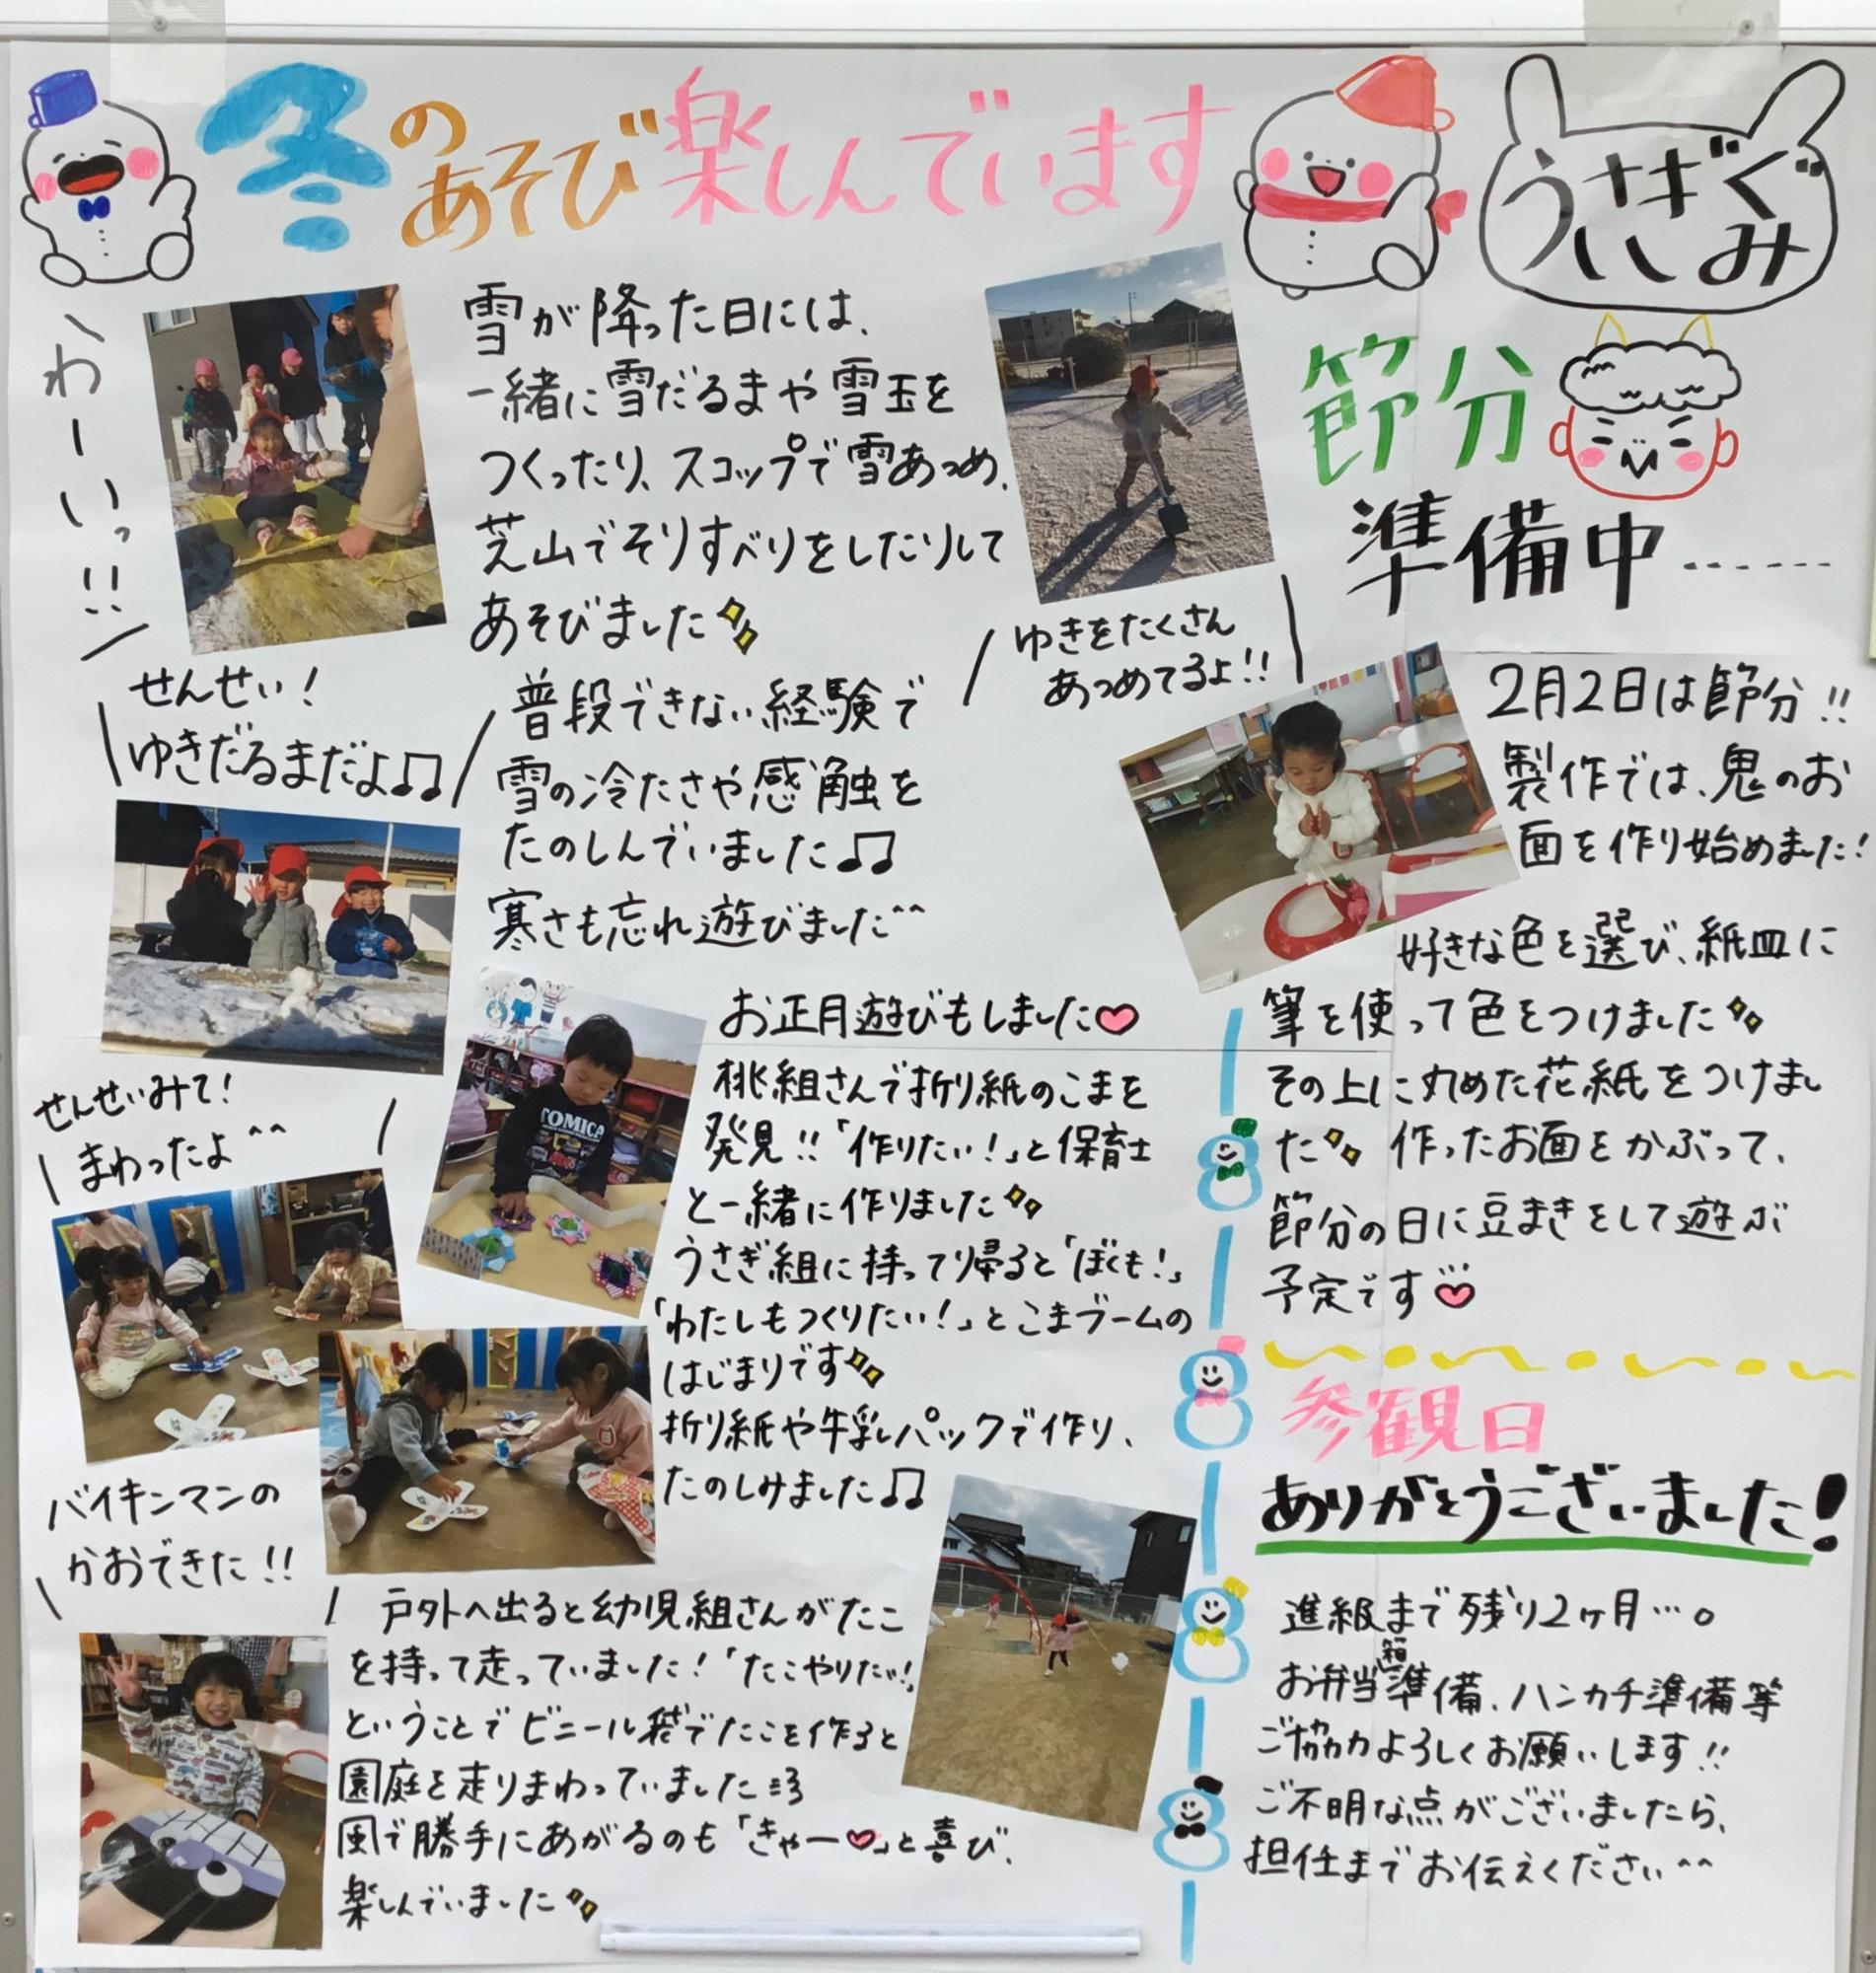 冬のあそび楽しんでいます
うさぎぐみ
わーいっ!!
雪が降った日には、
一緒に雪だるまや雪玉を
つくったり、スコップで雪あつめ、
芝山でそりすべりをしたりして
あそびました
ゆきをたくさん
あつめてるよ!!
せんせい!
ゆきだるまだよ♫
普段できない経験で
雪の冷たさや感触を
たのしんでいました♫
寒さも忘れ遊びました^^
お正月遊びもしました
桃組さんで折り紙のこまを
発見!!「作りたい!」と保育士
と一緒に作りました
うさぎ組に持って帰ると「ぼくも!」
「わたしもつくりたい!」とこまブームの
はじまりです
折り紙や牛乳パックで作り、
たのしみました♫
せんせいみて!
まわったよ^^
TOMICA
バイキンマンの
かおできた!!
戸外へ出ると幼児組さんがたこ
を持って走っていました!「たこやりたい!」
ということでビニール袋でたこを作ると
園庭を走りまわっていました
風で勝手にあがるのも「きゃー」と喜び、
楽しんでいました
節分
準備中------
2月2日は節分!!
製作では、鬼のお
面を作り始めました!
好きな色を選び、紙皿に
筆を使って色をつけました
その上に丸めた花紙をつけまし
た 作ったお面をかぶって、
節分の日に豆まきをして遊ぶ
予定です
参観日
ありがとうございました!
進級まで残り2ヶ月…。
お弁当箱準備、ハンカチ準備等
ご協力よろしくお願いします!!
ご不明な点がございましたら、
担任までお伝えください^^